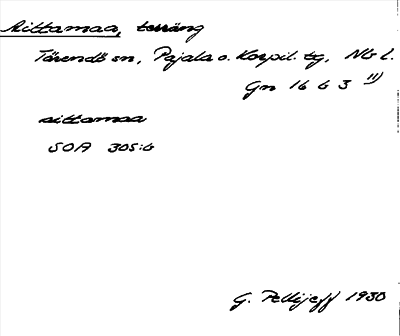 Aittamaa, terräng
Tärendö sn, Pajala o. Korpil. tg, Nb l.
Gn 16 63 11)
aittamaa
SOA 305:6
G. Pellijeff 1930